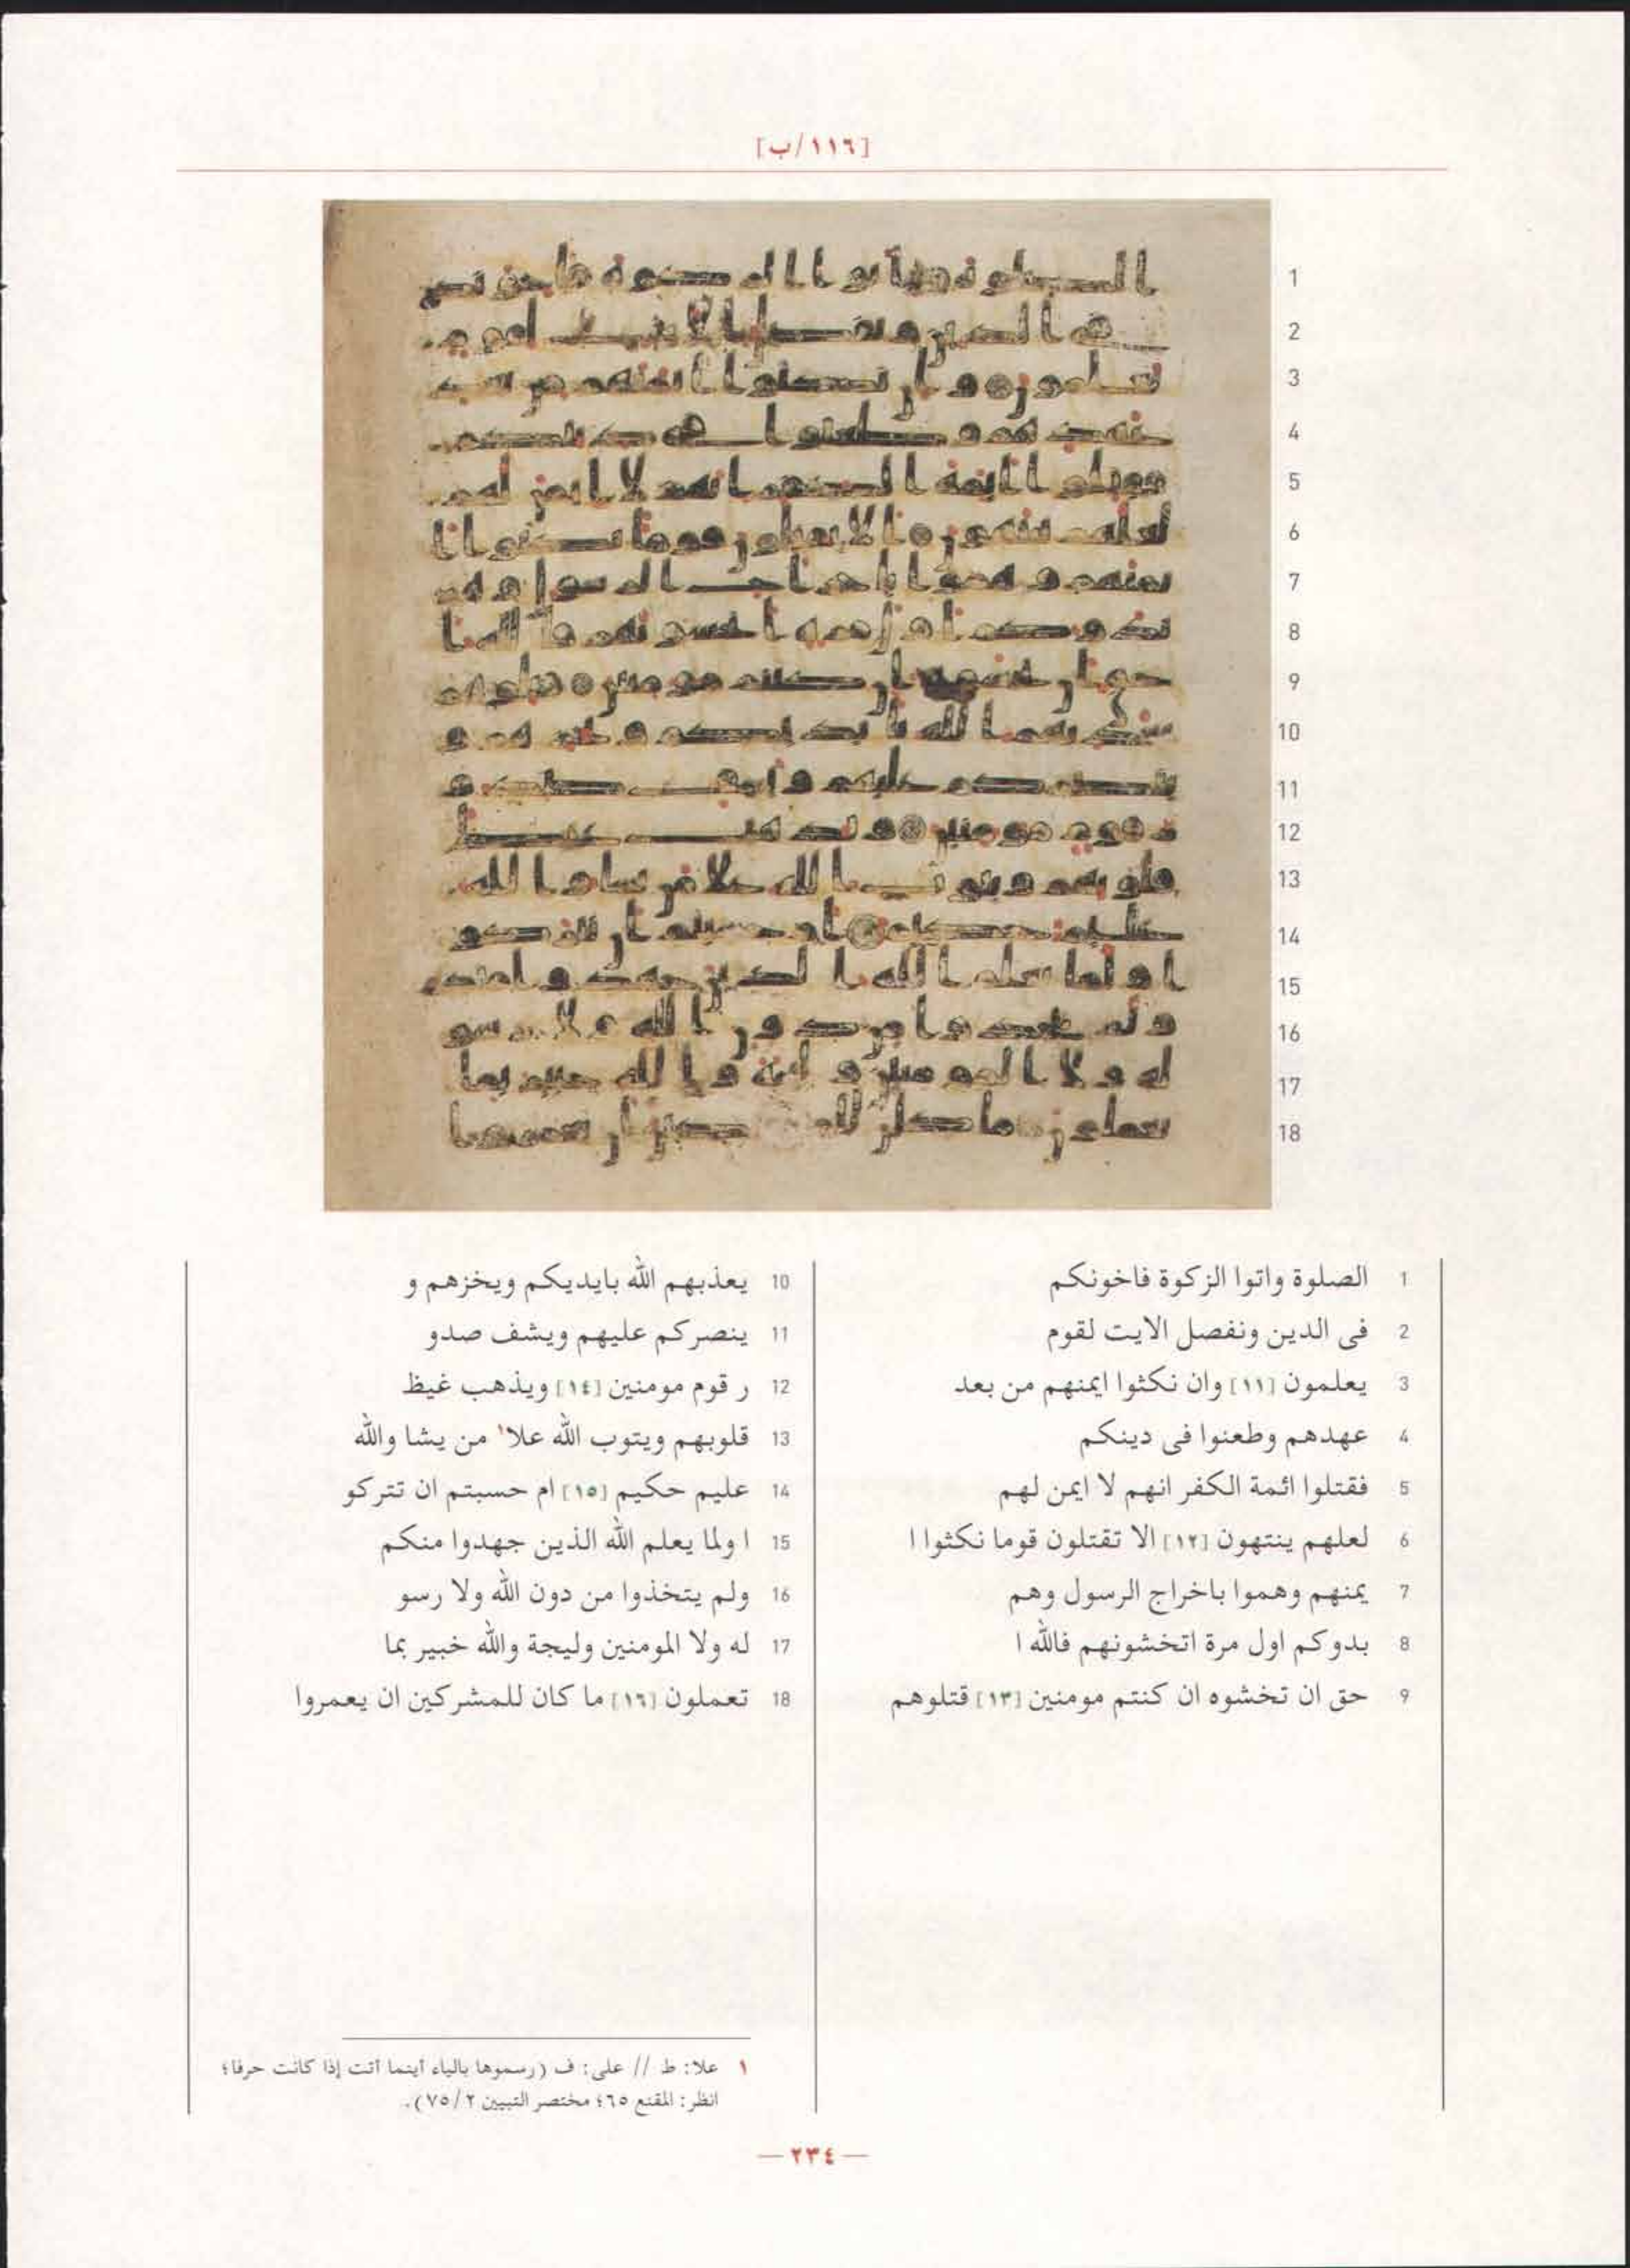 [١١٦/ب]
1
2
3
4
5
6
7
8
9
10
11
12
13
14
15
16
17
18
1 الصلوة واتوا الزكوة فاخونكم
2 فى الدين ونفصل الايت لقوم
3 يعلمون [١١] وان نكثوا ايمنهم من بعد
4 عهدهم وطعنوا فى دينكم
5 فقتلوا ائمة الكفر انهم لا ايمن لهم
6 لعلهم ينتهون [١٢] الا تقتلون قوما نكثوا ا
7 يمنهم وهموا باخراج الرسول وهم
8 بدوكم اول مرة اتخشونهم فالله ا
9 حق ان تخشوه ان كنتم مومنين [١٣] قتلوهم
10 يعذبهم الله بايديكم ويخزهم و
11 ينصركم عليهم ويشف صدو
12 ر قوم مومنين [١٤] ويذهب غيظ
13 قلوبهم ويتوب الله علا١ من يشا والله
14 عليم حكيم [١٥] ام حسبتم ان تتركو
15 ا ولما يعلم الله الذين جهدوا منكم
16 ولم يتخذوا من دون الله ولا رسو
17 له ولا المومنين وليجة والله خبير بما
18 تعملون [١٦] ما كان للمشركين ان يعمروا
١ علا: ط // على: ف (رسموها بالياء أينما أتت إذا كانت حرفا؛
انظر: المقنع ٦٥؛ مختصر التبيين ٧٥/٢).
— ٢٣٤ —